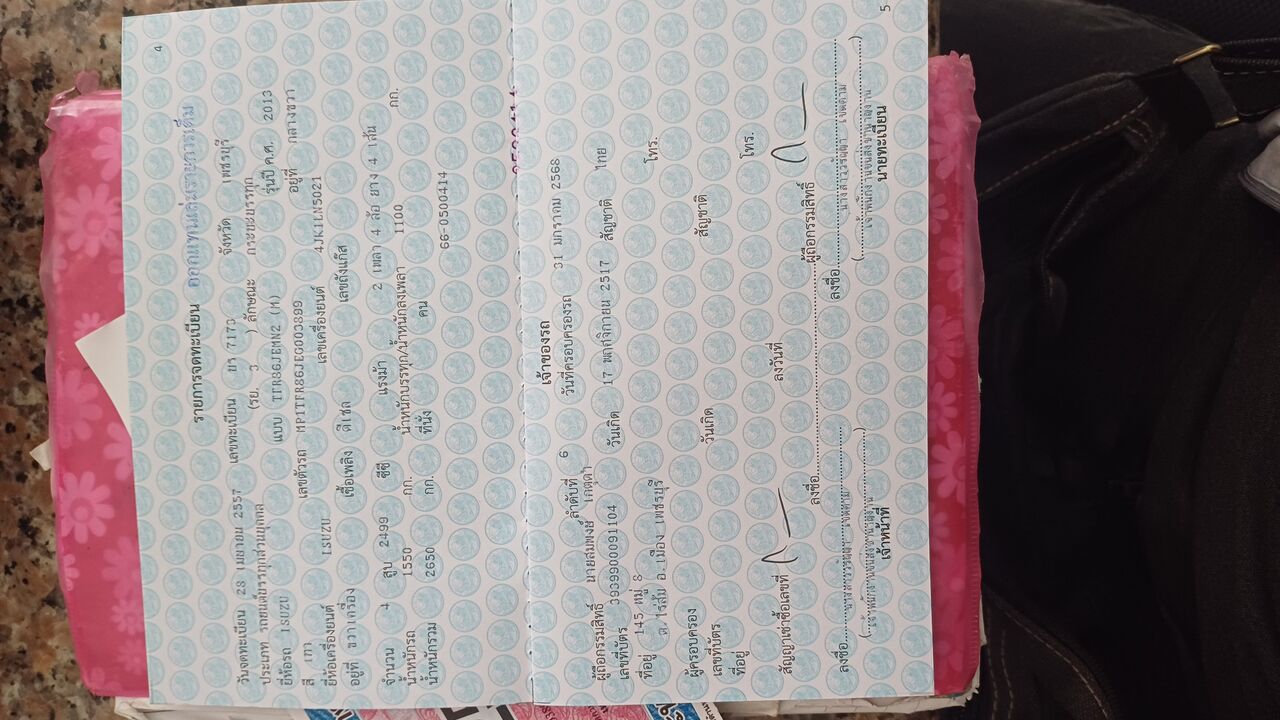 4
รายการจดทะเบียน ออกแทนเล่ม/รายการเดิม
วันจดทะเบียน 28 เมษายน 2557 เลขทะเบียน ยา 7173 จังหวัด เพชรบุรี
ประเภท รถยนต์บรรทุกส่วนบุคคล (รย. 3 ) ลักษณะ กระบะบรรทุก
ยี่ห้อรถ ISUZU แบบ TFR86JEMN2 (M) รุ่นปี ค.ศ. 2013
สี เทา เลขตัวรถ MP1TFR86JEG003899 อยู่ที่ กลางขวา
ยี่ห้อเครื่องยนต์ ISUZU เลขเครื่องยนต์ 4JK1LN5021
อยู่ที่ ขวาเครื่อง เชื้อเพลิง ดีเซล เลขถังแก๊ส
จำนวน 4 สูบ 2499 ซีซี แรงม้า 2 เพลา 4 ล้อ ยาง 4 เส้น
น้ำหนักรถ 1550 กก. น้ำหนักบรรทุก/น้ำหนักลงเพลา 1100 กก.
น้ำหนักรวม 2650 กก. ที่นั่ง คน
66-0500414
เจ้าของรถ
ลำดับที่ 6 วันที่ครอบครองรถ 31 มกราคม 2568
ผู้ถือกรรมสิทธิ์ นายสมพงษ์
เลขที่บัตร 3939900091104 วันเกิด 17 พฤศจิกายน 2517 สัญชาติ ไทย
ที่อยู่ 145 หมู่ 8
ต.ไร่ส้ม อ.เมือง เพชรบุรี โทร.
ผู้ครอบครอง
เลขที่บัตร วันเกิด สัญชาติ
ที่อยู่ โทร.
สัญญาเช่าซื้อเลขที่ ลงวันที่
ลงชื่อ ผู้ถือกรรมสิทธิ์
ลงชื่อ ลงชื่อ
เจ้าหน้าที่ นายทะเบียน
5